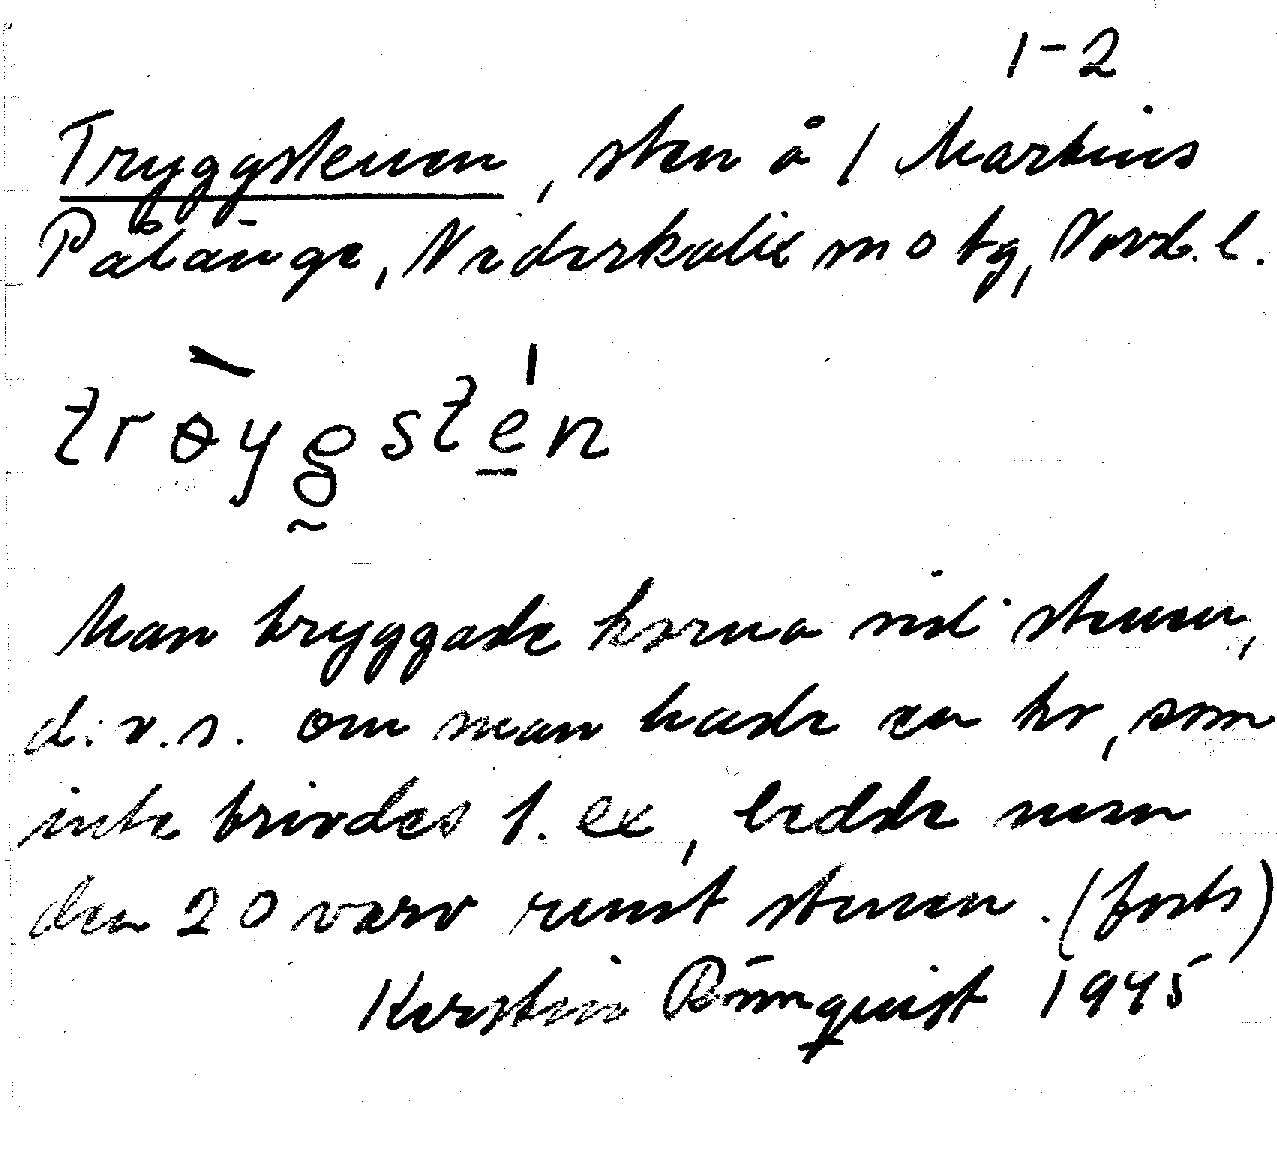 1-2
Tryggstenen, sten å 1 Martins
Pålänge, Nederkalix mo tg, Nordb. l.
trøygstén
Man tryggade korna vid stenen,
d.v.s. om man hade en ko, som
inte trivdes t. ex, ledde man
den 20 varv runt stenen. (forts)
Kerstin 1945